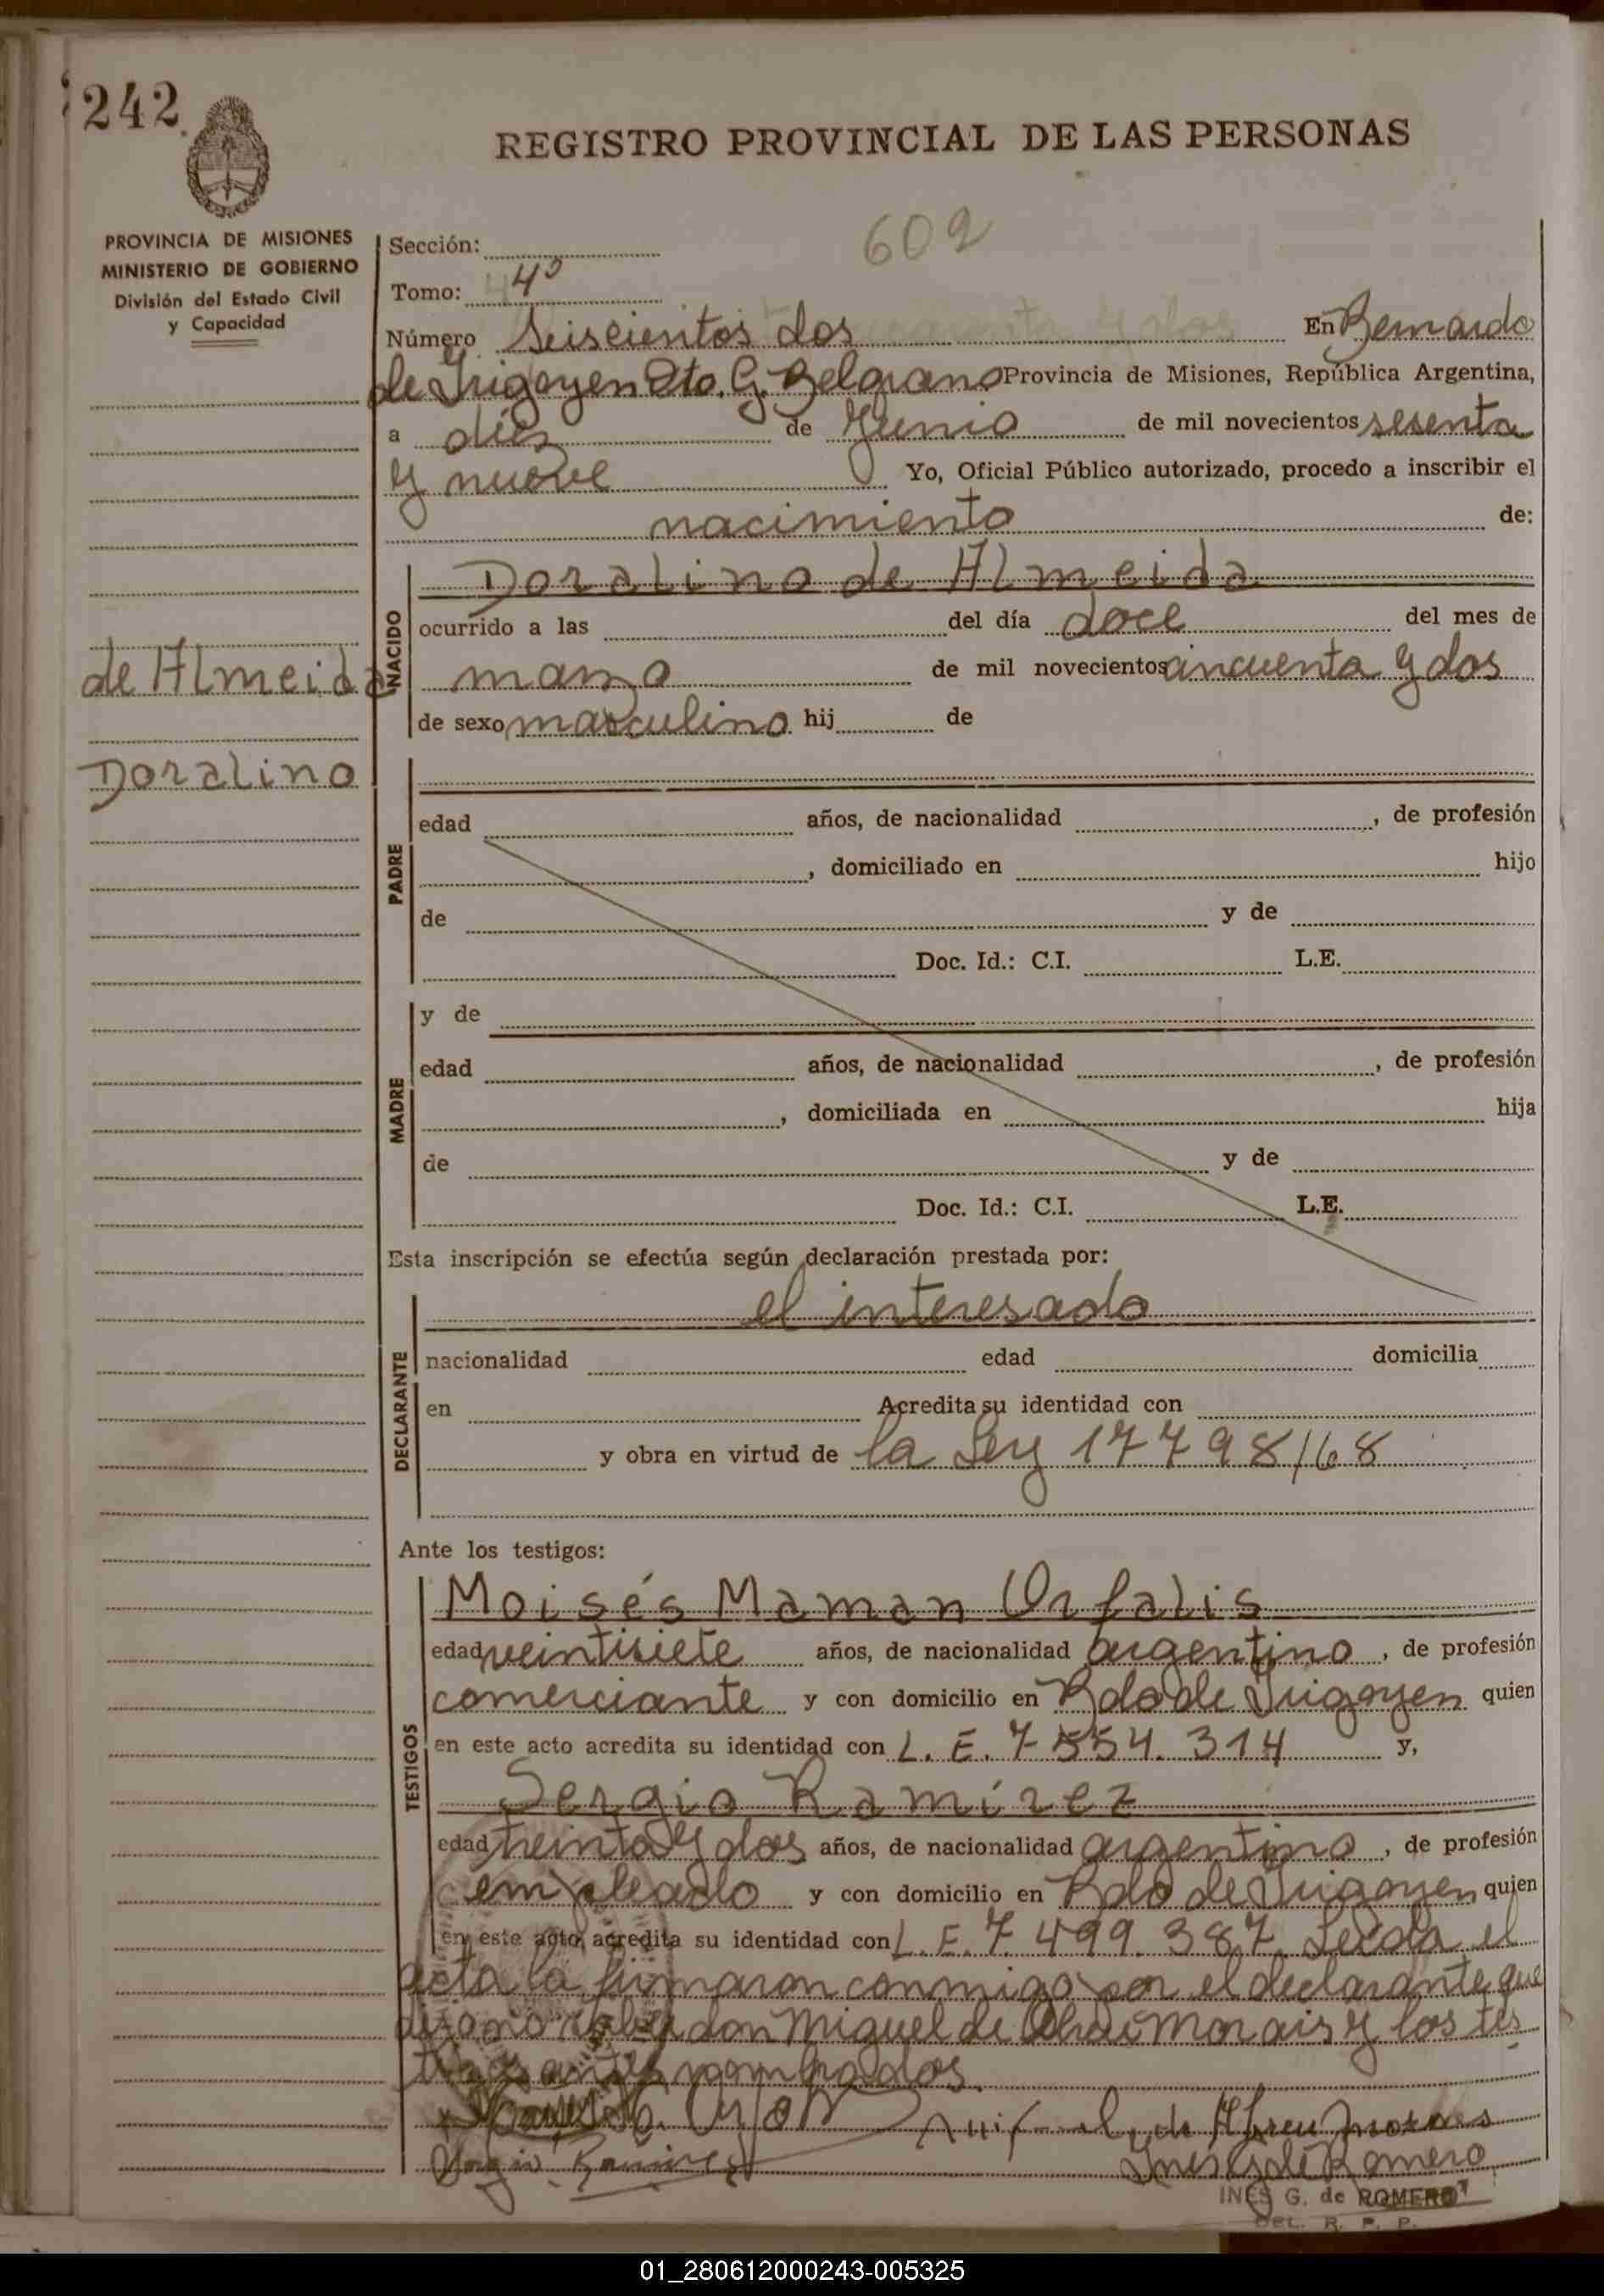 242
REGISTRO PROVINCIAL DE LAS PERSONAS
PROVINCIA DE MISIONES
MINISTERIO DE GOBIERNO
División del Estado Civil
y Capacidad
602
Sección:
Tomo: 4º
Número Seiscientos dos En Bernardo
de Irigoyen Dto. G. Belgrano Provincia de Misiones, República Argentina,
a diez de Junio de mil novecientos sesenta
y nueve Yo, Oficial Público autorizado, procedo a inscribir el
nacimiento de:
NACIDO
Doralino de Almeida
ocurrido a las del día doce del mes de
marzo de mil novecientos cincuenta y dos
de sexo masculino hij de
de Almeida
Doralino
PADRE
edad años, de nacionalidad , de profesión
, domiciliado en hijo
de y de
Doc. Id.: C.I. L.E.
MADRE
y de
edad años, de nacionalidad , de profesión
, domiciliada en hija
de y de
Doc. Id.: C.I. L.E.
Esta inscripción se efectúa según declaración prestada por:
DECLARANTE
el interesado
nacionalidad edad domicilia
en Acredita su identidad con
y obra en virtud de la Ley 17798/68
Ante los testigos:
TESTIGOS
Moisés Maman Orfalis
edad veintisiete años, de nacionalidad argentino, de profesión
comerciante y con domicilio en Bdo de Irigoyen quien
en este acto acredita su identidad con L. E. 7 554. 314 y,
Sergio Ramírez
edad treinta y dos años, de nacionalidad argentino, de profesión
empleado y con domicilio en Bdo de Irigoyen quien
en este acto acredita su identidad con L. E. 7. 499. 387. Leída el
acta la firmaron conmigo por el declarante que
don Miguel de y los tes
tigos antes nombrados.
de Abreu Moraes
Sergio Ramírez
Ines G de Romero
INES G. de ROMERO
DEL. R. P. P.
01_280612000243-005325